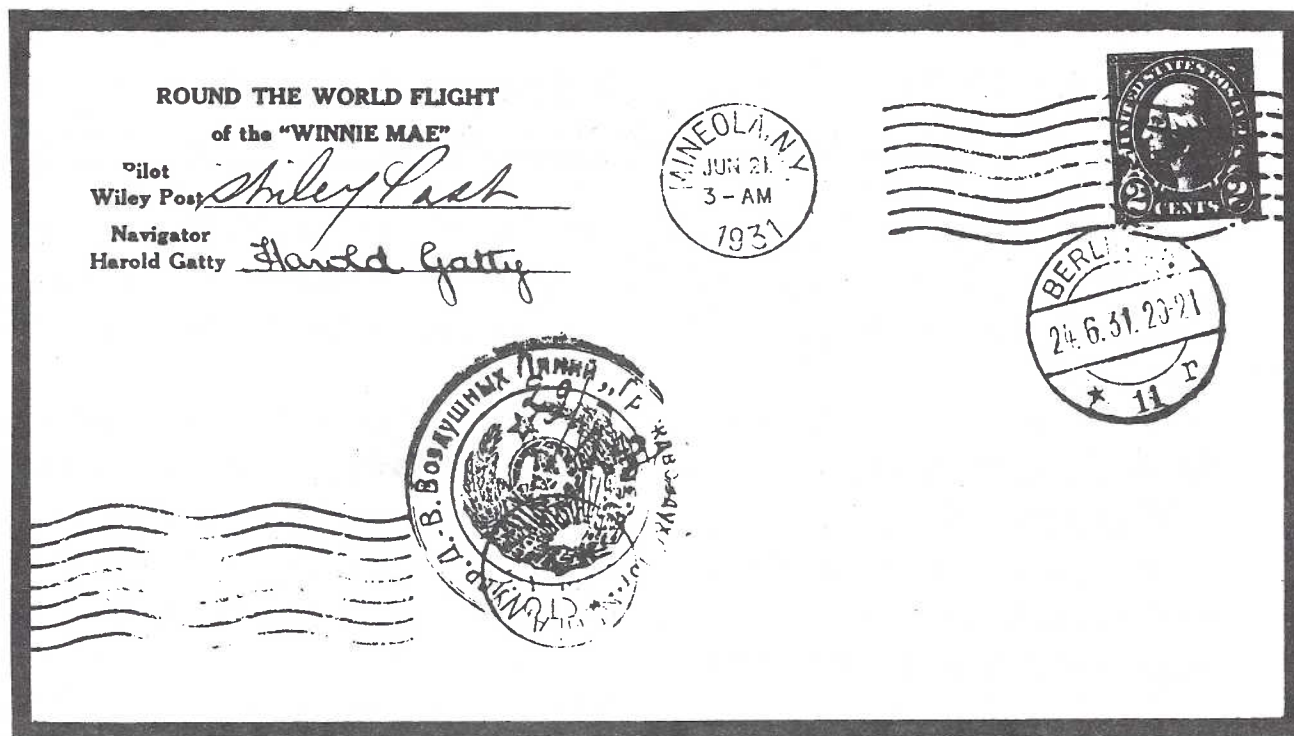 ROUND THE WORLD FLIGHT
of the "WINNIE MAE"
Pilot
Wiley Post Wiley Post
Navigator
Harold Gatty Harold Gatty
MINEOLA, N.Y.
JUN 21
3 - AM
1931
UNITED STATES POSTAGE
2 CENTS 2
BERLIN
24.6.31.20-21
* 11 r
Д.-В. Воздушных Линий „